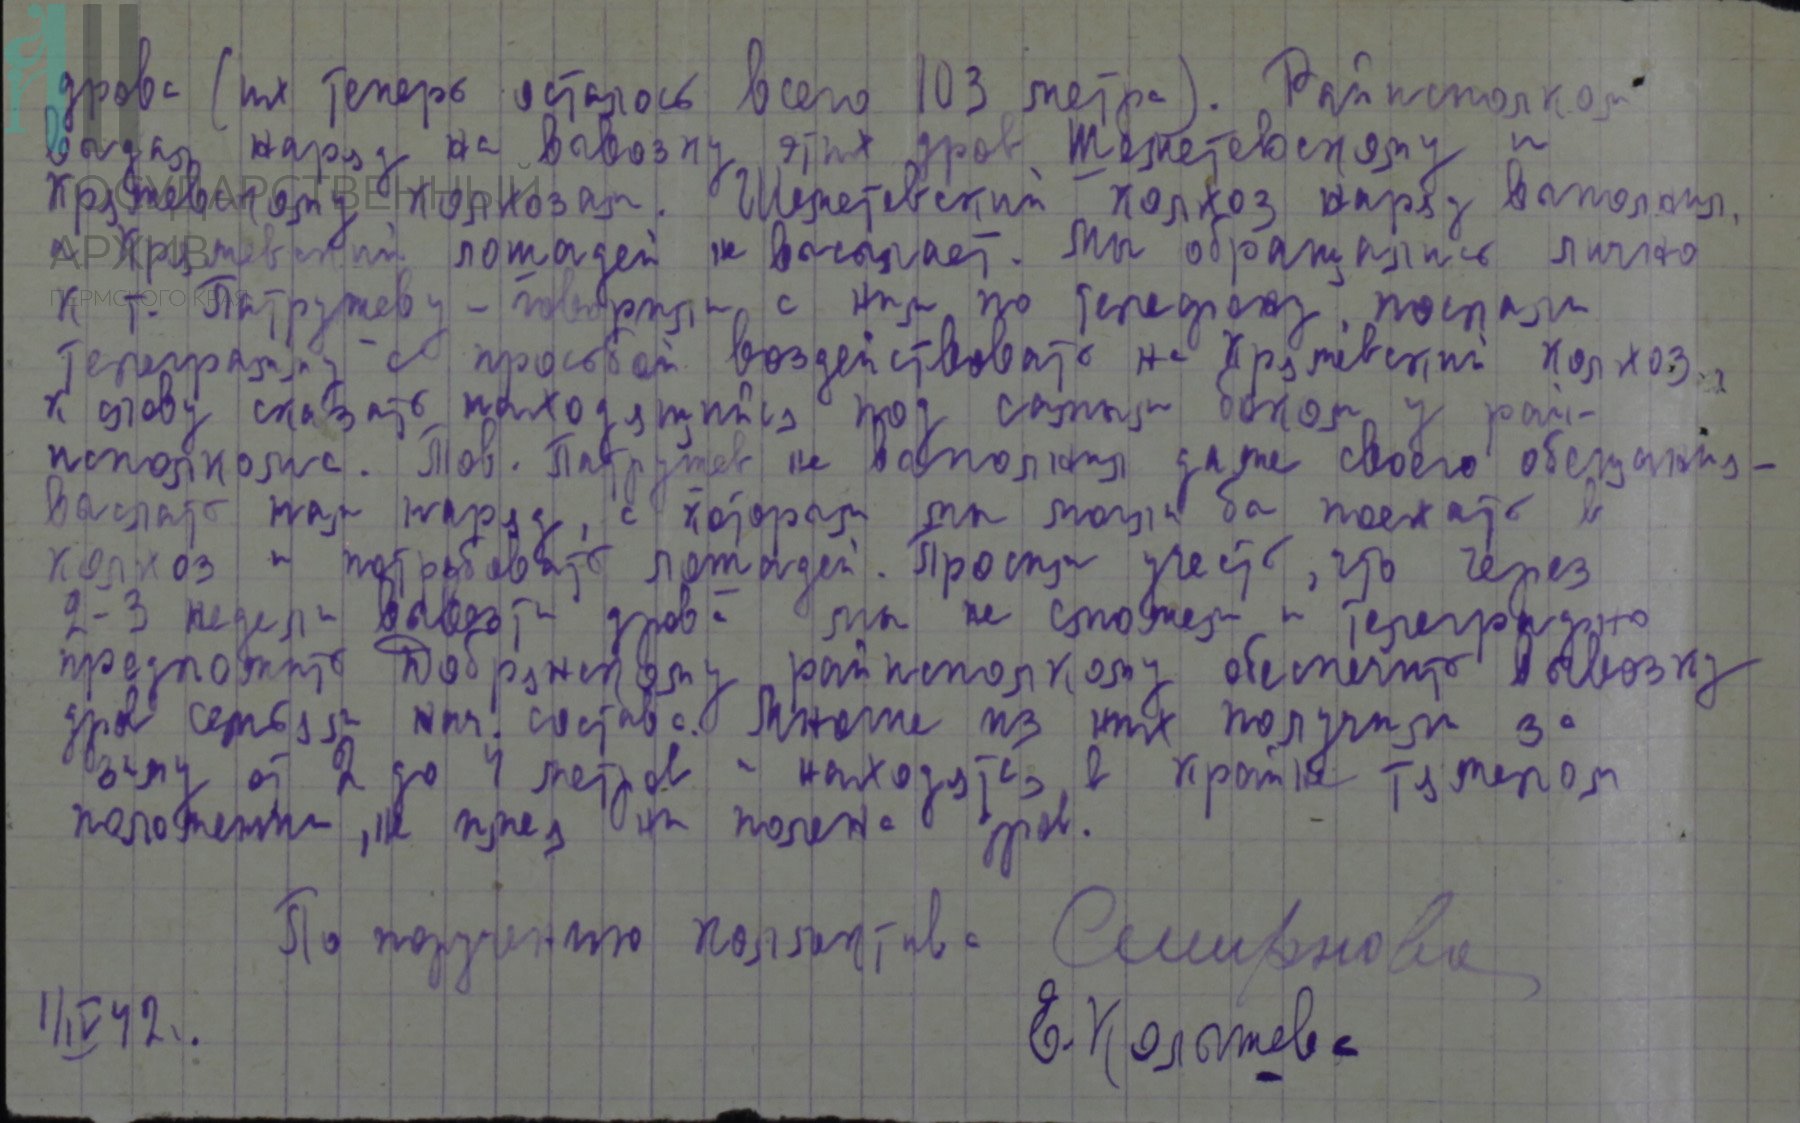 дрова (их теперь осталось всего 103 метра). Райисполком
выдал наряд на вывозку этих дров Шеметевскому и
Кряжевскому колхозам. Шеметевский колхоз наряд выполнил,
а Кряжевский лошадей не высылает. Мы обращались лично
к т. Патрушеву – говорили с ним по телефону, послали
телеграмму с просьбой воздействовать на Кряжевский колхоз,
к слову сказать находящийся под самым боком у рай-
исполкома. Тов. Патрушев не выполнил даже своего обещания –
выслать нам наряд, с которым мы могли бы поехать в
колхоз и потребовать лошадей. Просим учесть, что через
2-3 недели вывезти дрова мы не сможем и телеграфно
предложить Добрянскому райисполкому обеспечить вывозку
дров семьям нач. состава. Многие из них получили за
зиму от 2 до 4 метров и находятся в крайне тяжелом
положении, не имея ни полена дров.
По поручению коллектива Смирнова
1/IV 42 г.
Е. Колышева
ГОСУДАРСТВЕННЫЙ
АРХИВ
ПЕРМСКОГО КРАЯ